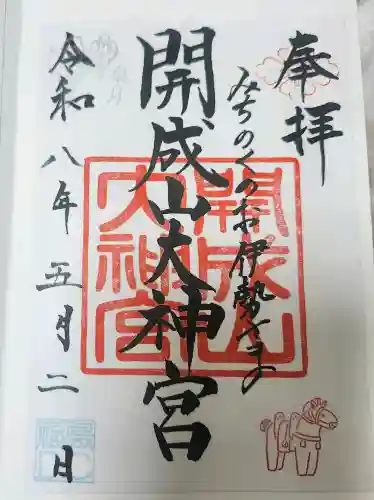 奉拝
みちのくのお伊勢さまの
開成山大神宮
令和八年五月二日
開成山
大神宮